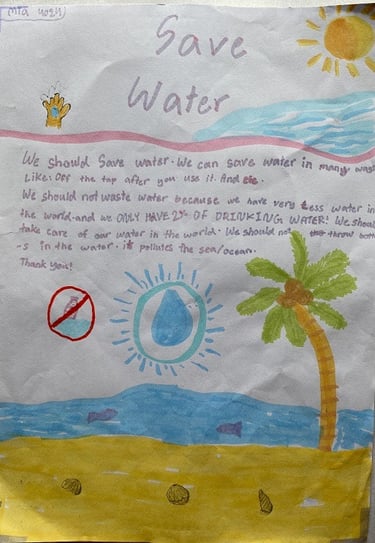 Mia
Save
Water
We should Save water. We can save water in many ways
Like: Off the tap after you use it. And
We should not waste water because we have very Less water in
the world. and we ONLY HAVE 2% OF DRINKING WATER! We should
take care of our water in the world. We should not throw bott
-s in the water. it pollutes the sea/ocean.
Thank you!